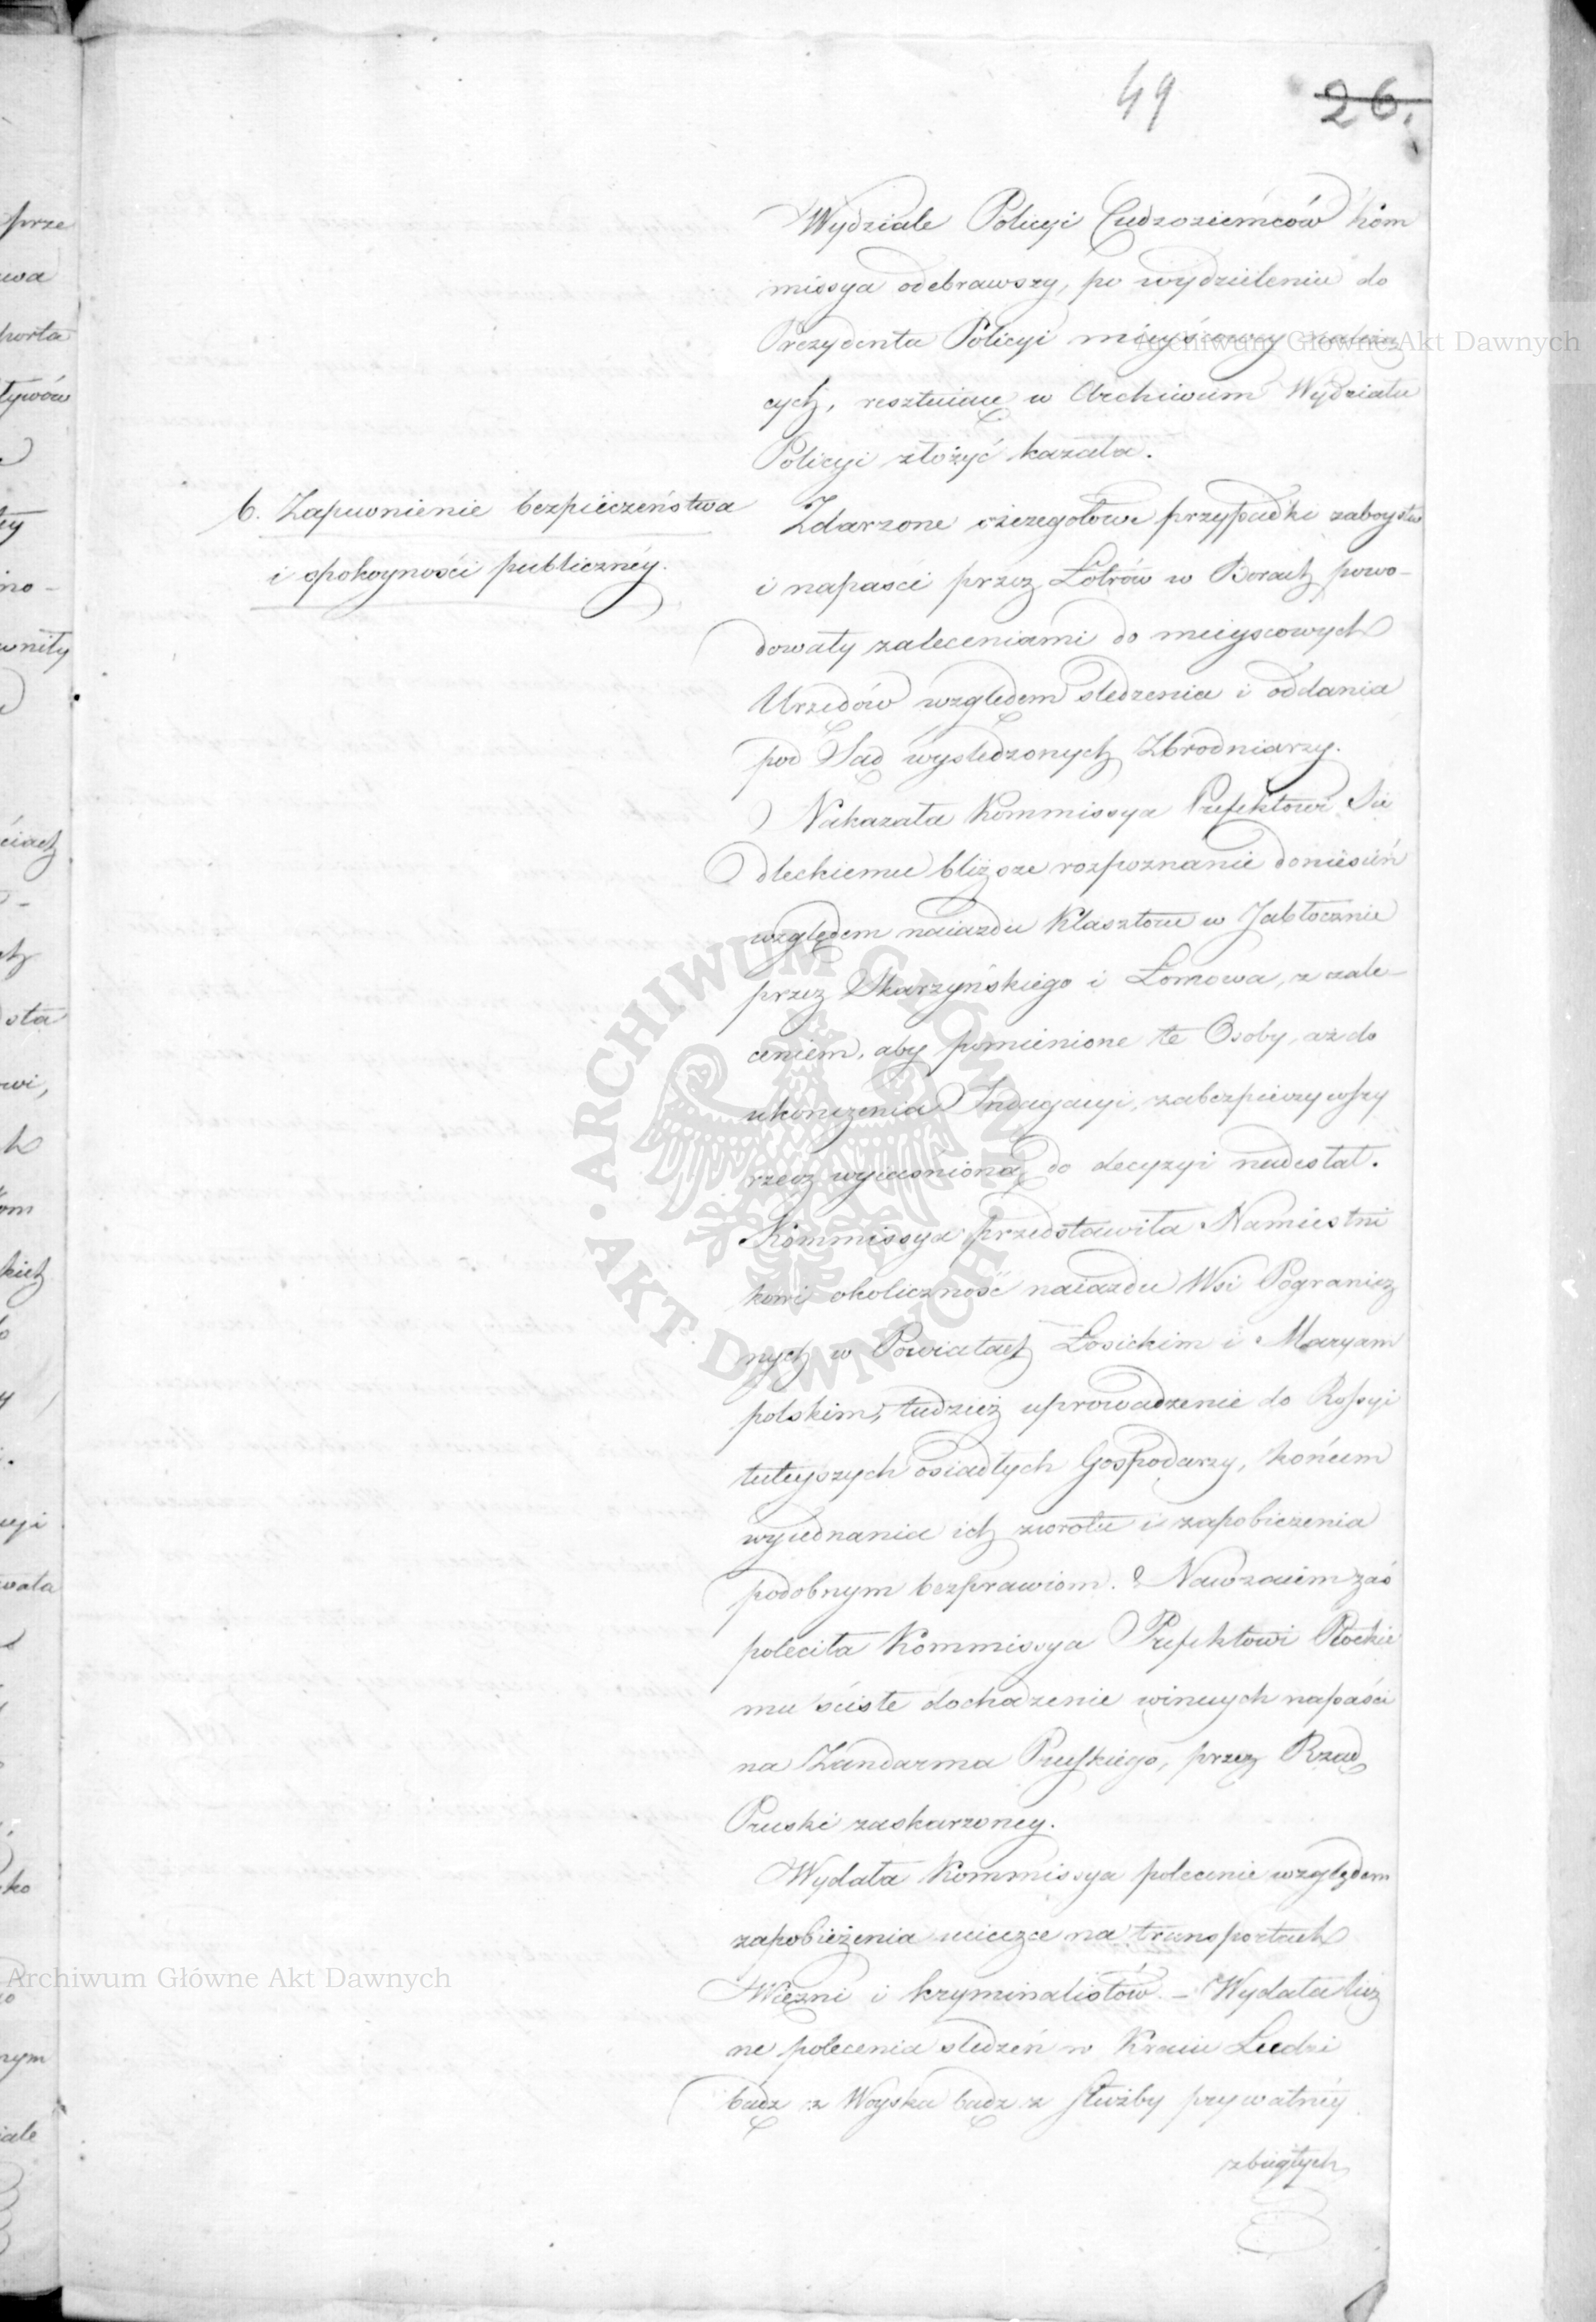 49 26.
Wydziale Policyi Cudzoziemców kom
missya odebrawszy, po wydzieleniu do
Prezydenta Policyi mieyscowey należą
cych, resztuiące w Archiwum Wydziału
Policyi złożyć kazała.
6. Zapewnienie bezpieczeństwa
i spokoyności publiczney.
Zdarzone szczegołowe przypadki zaboystw
i napaści przez Łotrów w Borach powo-
dowały zaleceniami do mieyscowych
Urzędów względem sledzenia i oddania
pod Sąd wysledzonych Zbrodniarzy.
Nakazała Kommissya Prefektowi Sie
dleckiemu bliższe rozpoznanie doniesień
względem naiazdu Klasztoru w Jabłocznie
przez Skarzyńskiego i Łomowa, z zale-
ceniem, aby pomienione te Osoby, aż do
ukończenia Indagacyi, zabezpieczywszy
rzecz wyiaśnioną do decyzyi nadesłał.
Kommissya przedstawiła Namiestni
kowi okoliczność naiazdu Wsi Pogranicz
nych w Powiatach Łosickim i Maryam
polskim, tudzież uprowadzenie do Rossyi
tuteyszych osiadłych Gospodarzy, końcem
wyiednania ich zwrotu i zapobieżenia
podobnym bezprawiom. Nawzaiem zaś
poleciła Kommissya Prefektowi Płockie
mu ścisłe dochodzenie winnych napaści
na Żandarma Pruskiego, przez Rząd
Pruski zaskarzoney.
Wydała Kommissya polecenie względem
zapobieżenia ucieczce na transportach
Więzni i kryminalistów. – Wydała licz
ne polecenia sledzeń w Kraiu Ludzi
bądz z Woyska bądz z służby prywatnéy
zbiegłych
Archiwum Główne Akt Dawnych
Archiwum Główne Akt Dawnych
ARCHIWUM GŁÓWNE
AKT DAWNYCH